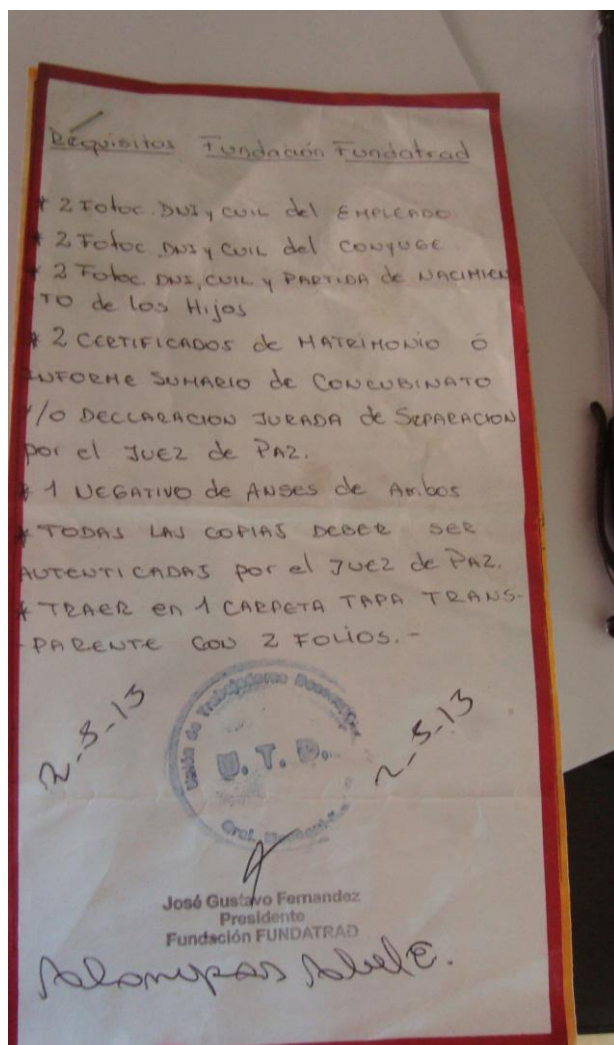 Requisitos Fundación Fundatrad
* 2 Fotoc. DNI y CUIL del EMPLEADO
* 2 Fotoc DNI y CUIL del CONYUGE
* 2 Fotoc DNI, CUIL y PARTIDA de NACIMIEN
TO de los Hijos
* 2 CERTIFICADOS de MATRIMONIO ó
INFORME SUMARIO de CONCUBINATO
Y/O DECLARACION JURADA de SEPARACION
por el JUEZ de PAZ.
* 1 NEGATIVO de ANSES de Ambos
* TODAS LAS COPIAS DEBER SER
AUTENTICADAS por el JUEZ de PAZ.
* TRAER en 1 CARPETA TAPA TRANS-
-PARENTE CON 2 FOLIOS.-
Unión de Trabajadores
U. T. D.
Gral.
José Gustavo Fernandez
Presidente
Fundación FUNDATRAD